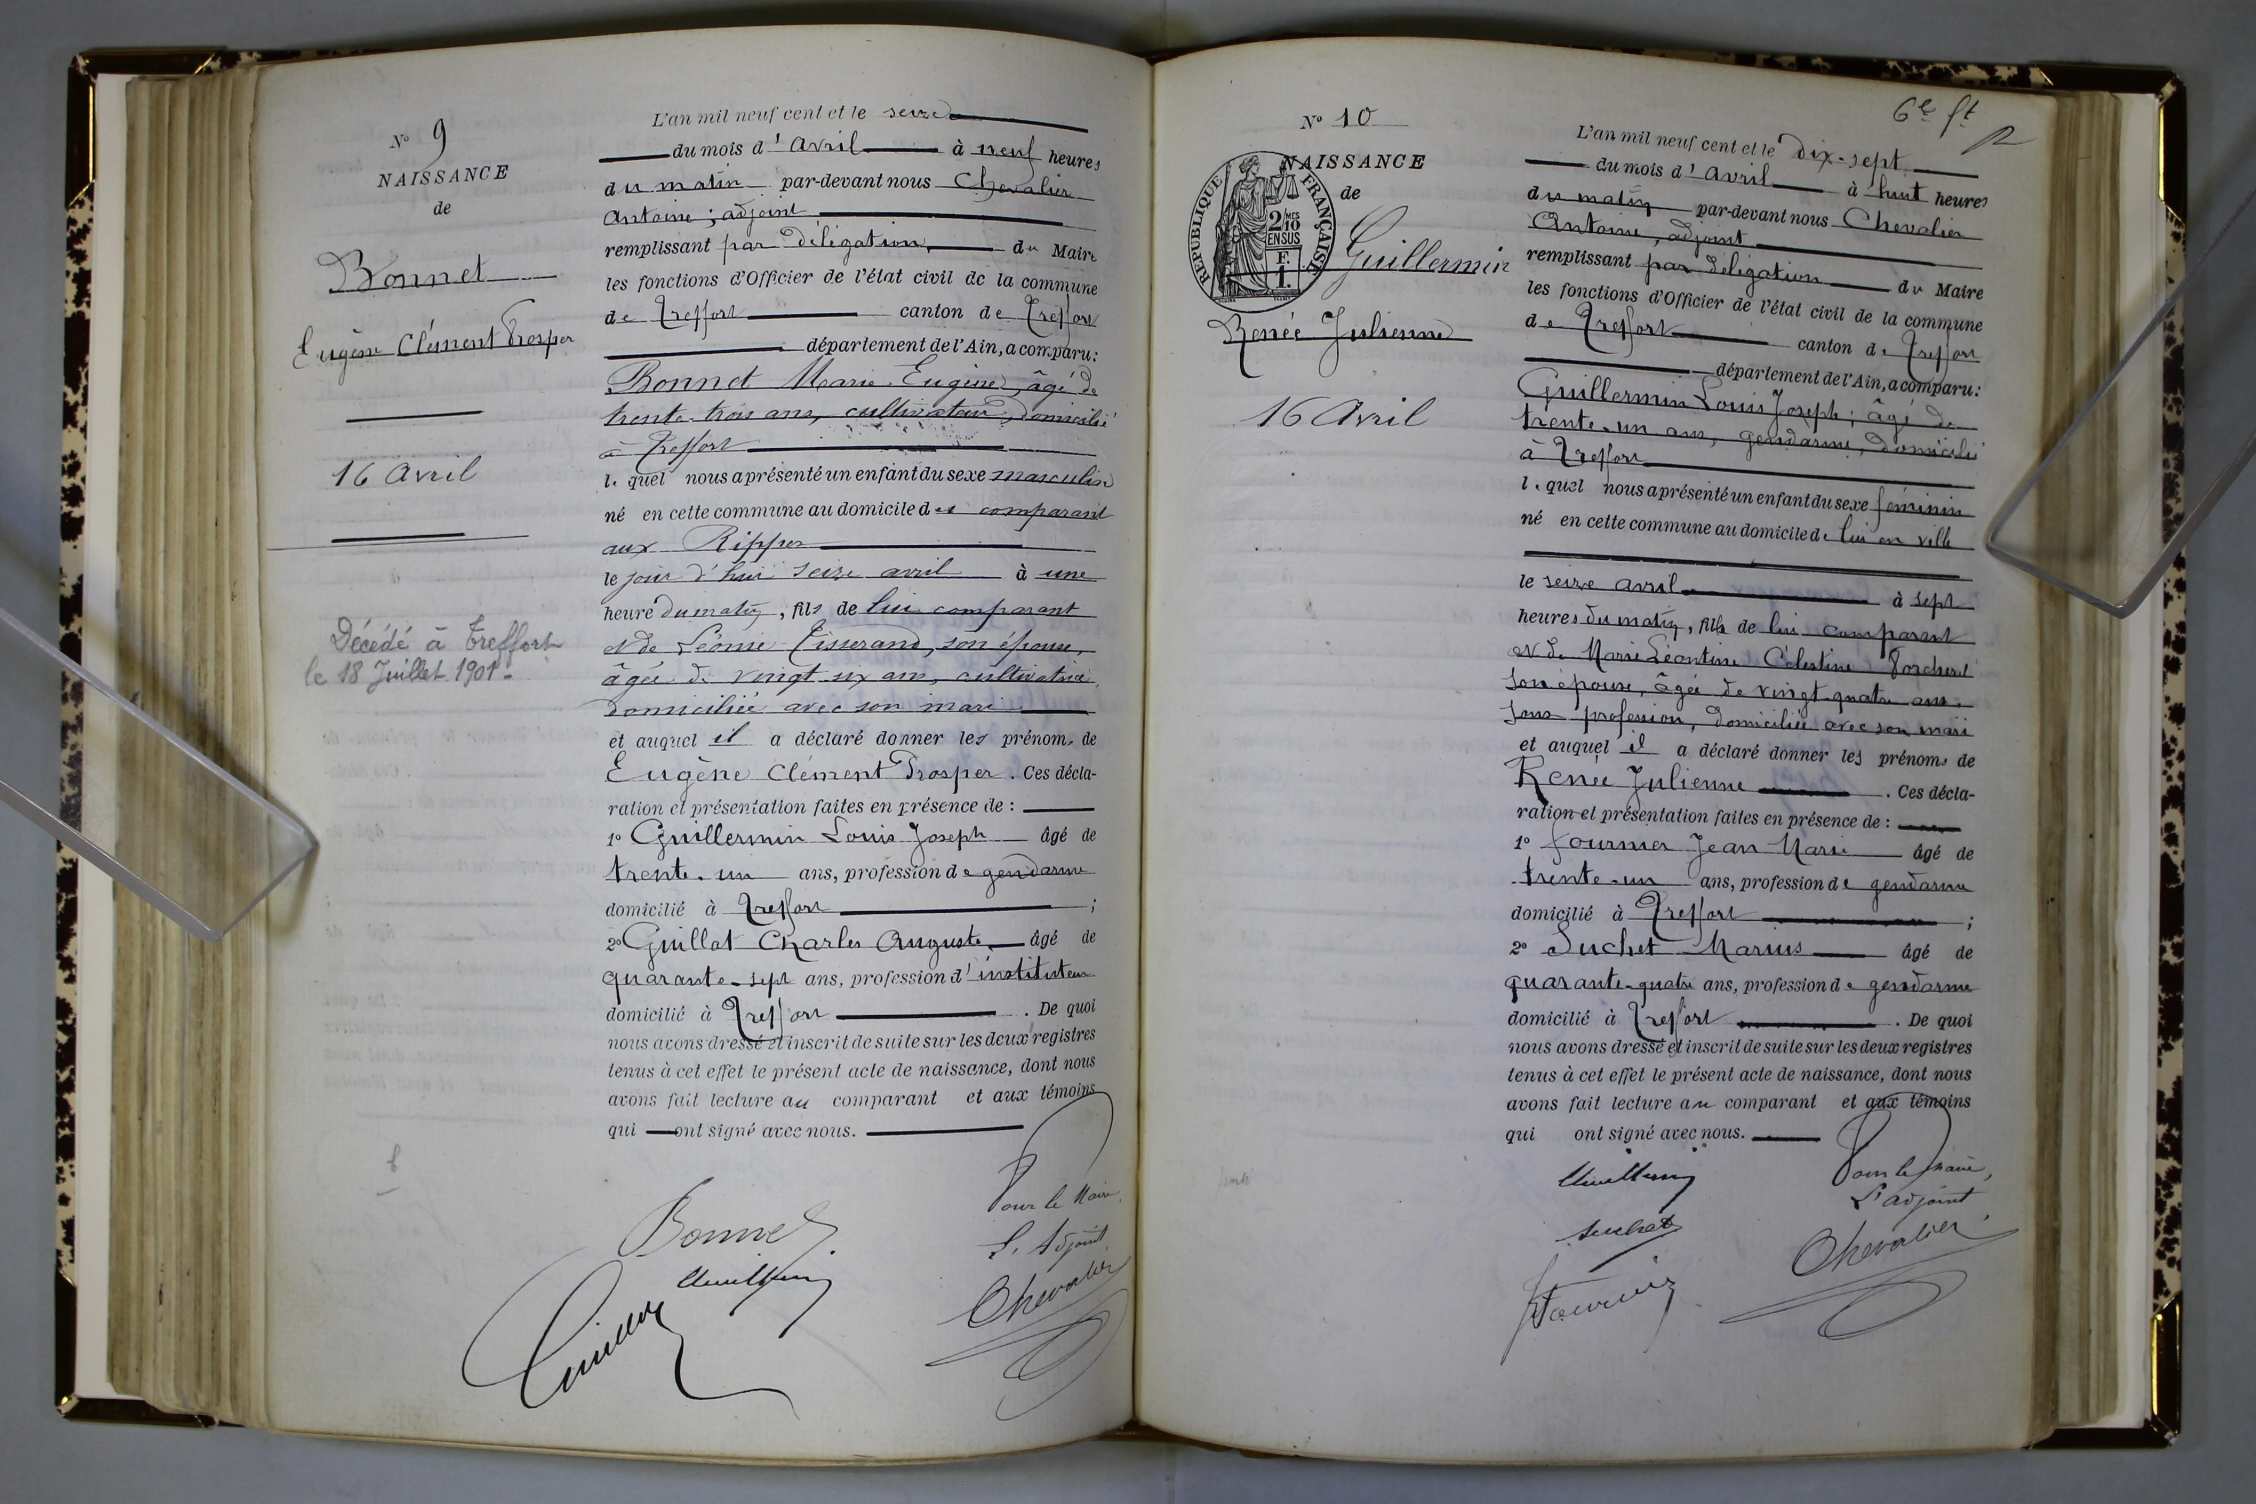 N° 9
NAISSANCE
de
Bonnet
Eugène Clément Prosper
16 Avril
Décédé à Treffort
le 18 Juillet 1901.
L'an mil neuf cent et le seize
du mois d'avril à neuf heures
du matin par-devant nous Chevalier
Antoine, adjoint
remplissant par délégation du Maire
les fonctions d'Officier de l'état civil de la commune
de Treffort canton de Treffort
département de l'Ain, a comparu:
Bonnet Marie Eugène, âgé de
trente-trois ans, cultivateur, domicilié
à Treffort
lequel nous a présenté un enfant du sexe masculin
né en cette commune au domicile du comparant
aux Rippes
le jour d'hui seize avril à une
heure du matin, fils de lui comparant
et de Léonie Tisserand, son épouse,
âgée de vingt-six ans, cultivatrice,
domiciliée avec son mari
et auquel il a déclaré donner les prénoms de
Eugène Clément Prosper. Ces décla-
ration et présentation faites en présence de :
1° Guillermin Louis Joseph âgé de
trente-un ans, profession de gendarme
domicilié à Treffort ;
2° Guillot Charles Auguste âgé de
quarante-sept ans, profession d'instituteur
domicilié à Treffort . De quoi
nous avons dressé et inscrit de suite sur les deux registres
tenus à cet effet le présent acte de naissance, dont nous
avons fait lecture au comparant et aux témoins
qui ont signé avec nous.
Pour le Maire,
L'Adjoint
Bonnet
Guillermin
Chevalier
Guillot
6e ft
N° 10
NAISSANCE
de
RÉPUBLIQUE FRANÇAISE
2/10 MES
EN SUS
F.
1.
Guillermin
Renée Julienne
16 Avril
L'an mil neuf cent et le dix-sept
du mois d'avril à huit heures
du matin par-devant nous Chevalier
Antoine, adjoint
remplissant par délégation du Maire
les fonctions d'Officier de l'état civil de la commune
de Treffort canton de Treffort
département de l'Ain, a comparu:
Guillermin Louis Joseph, âgé de
trente-un ans, gendarme, domicilié
à Treffort
lequel nous a présenté un enfant du sexe féminin
né en cette commune au domicile de lui en ville
le seize avril à sept
heures du matin, fille de lui comparant
et de Marie Léontine Célestine
son épouse, âgée de vingt-quatre ans,
sans profession, domiciliée avec son mari
et auquel il a déclaré donner les prénoms de
Renée Julienne . Ces décla-
ration et présentation faites en présence de :
1° Fournier Jean Marie âgé de
trente-un ans, profession de gendarme
domicilié à Treffort ;
2° Suchet Marius âgé de
quarante-quatre ans, profession de gendarme
domicilié à Treffort . De quoi
nous avons dressé et inscrit de suite sur les deux registres
tenus à cet effet le présent acte de naissance, dont nous
avons fait lecture au comparant et aux témoins
qui ont signé avec nous.
Guillermin
Pour le Maire,
L'adjoint
Suchet
Chevalier
Fournier